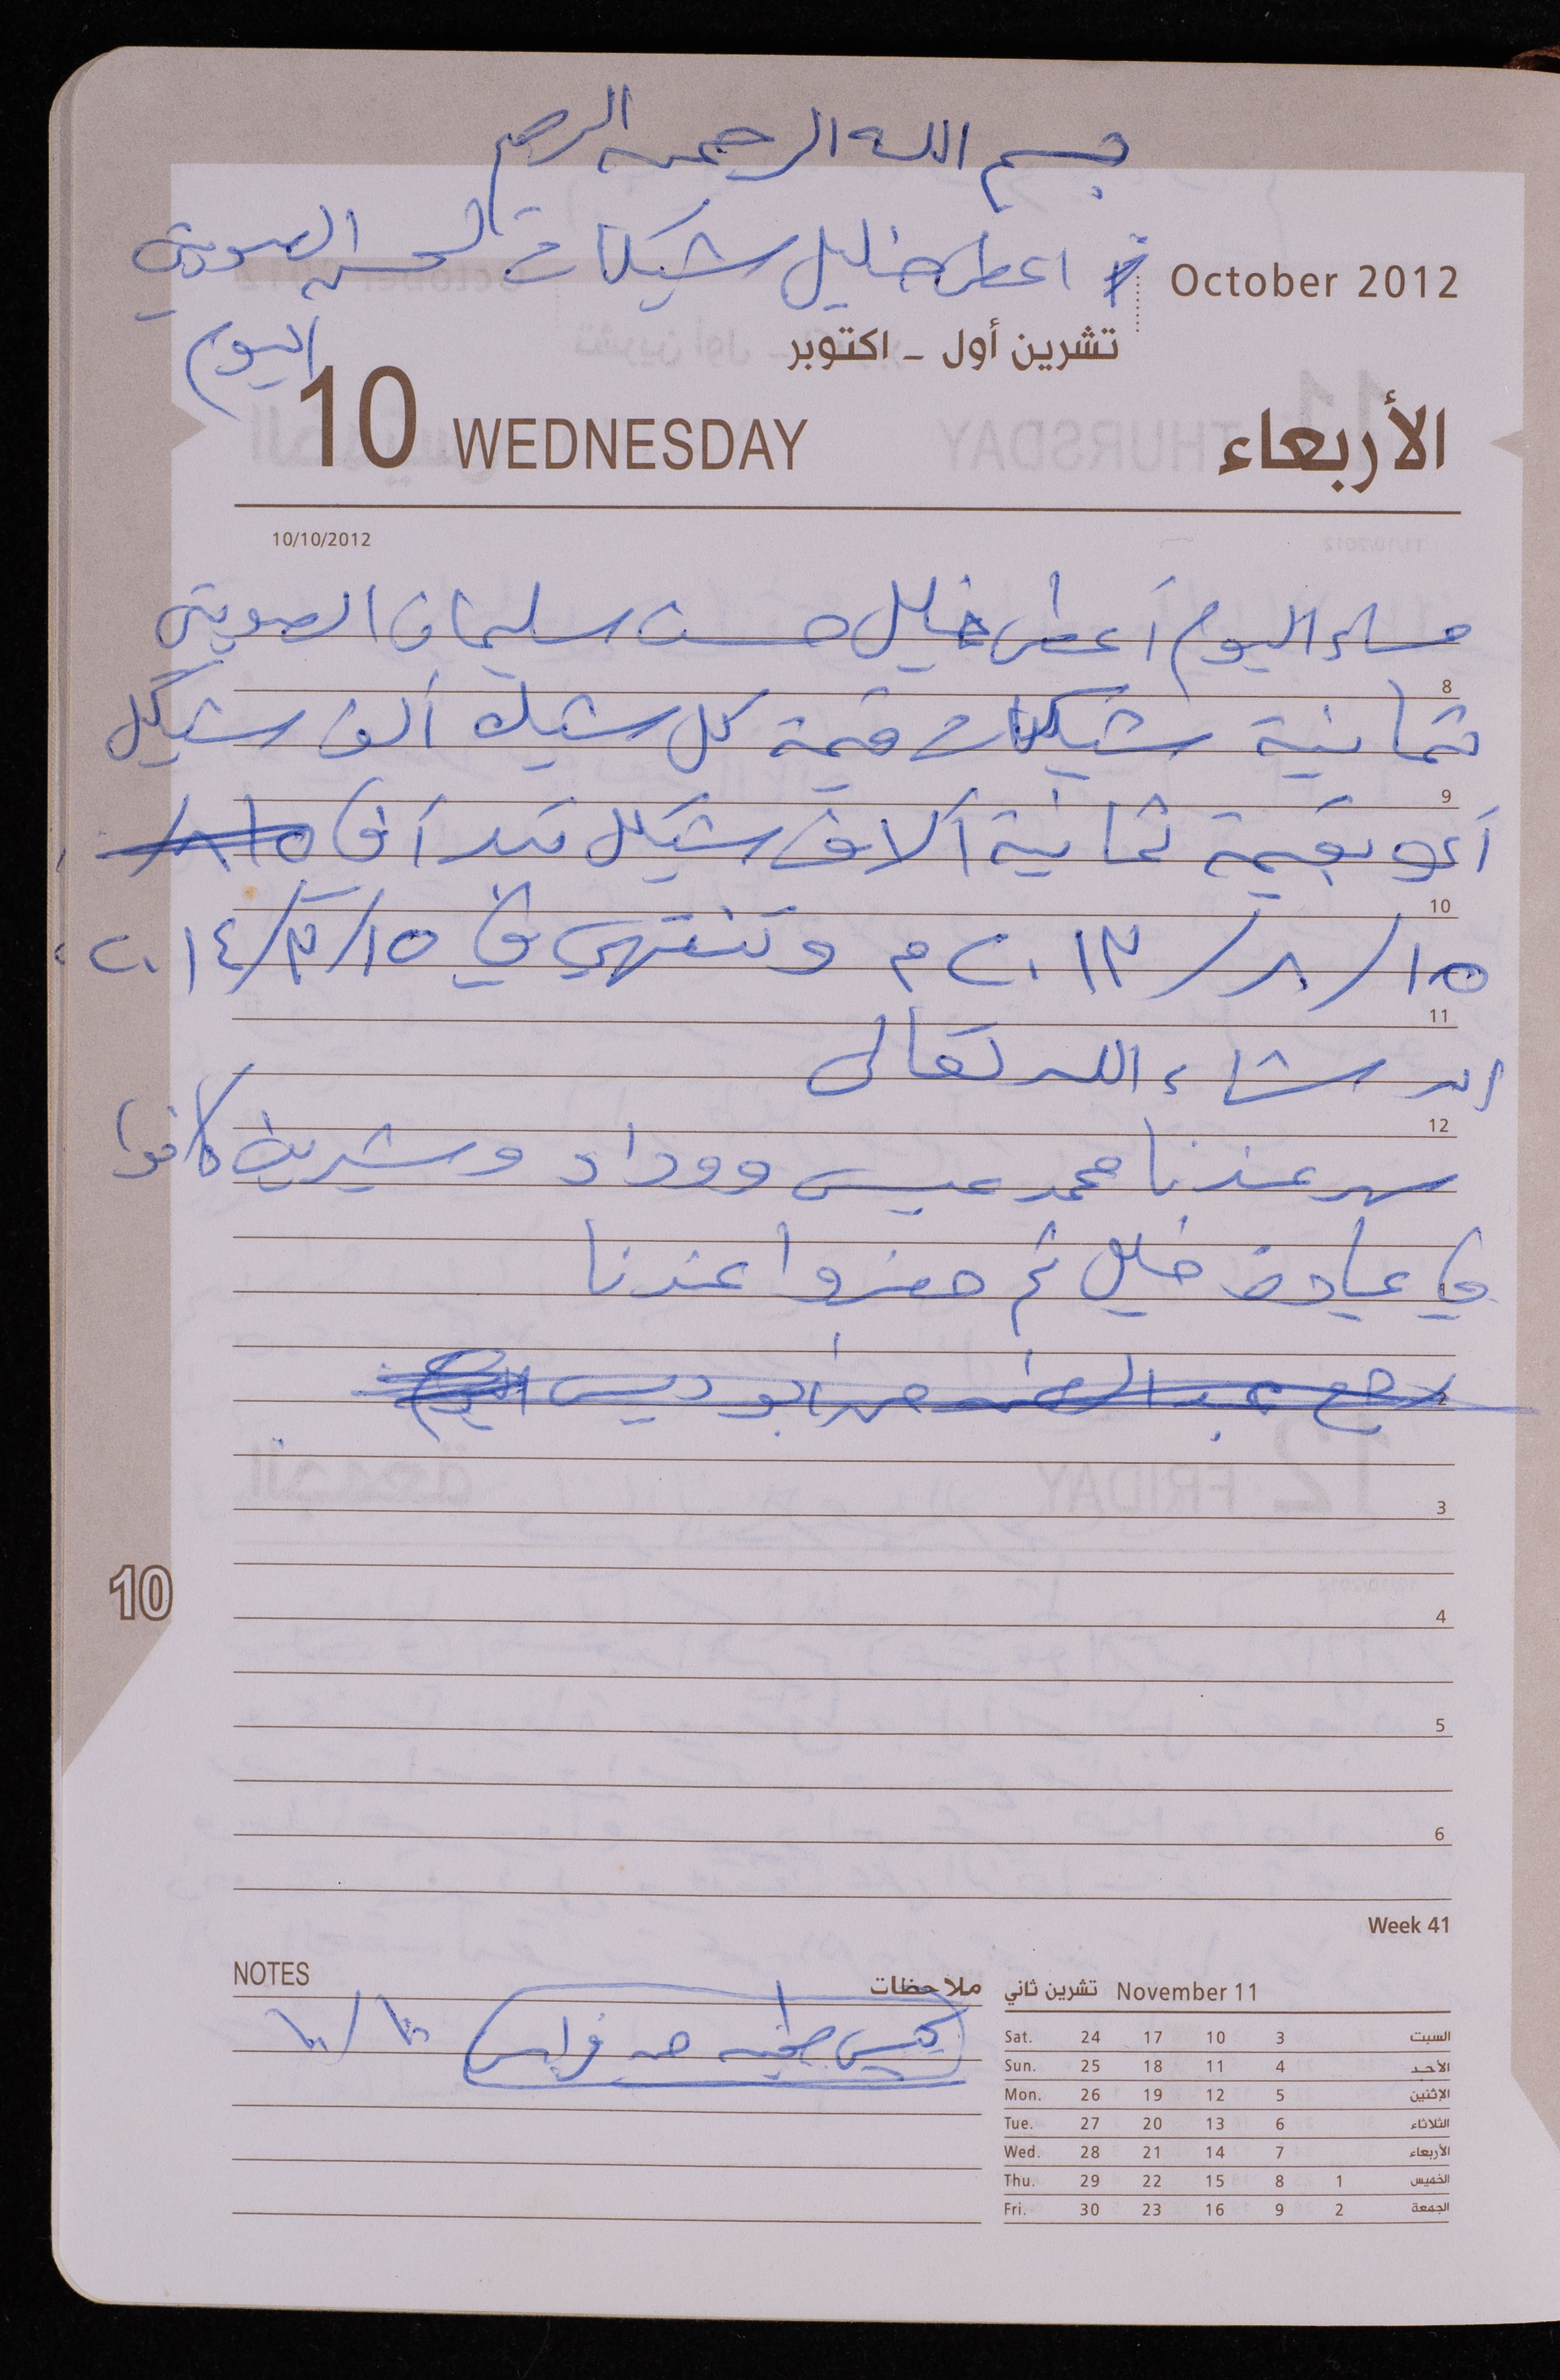 بسم الله الرحمن الرحيم
اعطى خليل شيكات لحسن الصويتي
اليوم
October 2012
تشرين أول ـ اكتوبر
10 WEDNESDAY الأربعاء
10/10/2012
مساء اليوم أعطى خليل حسن سليمان الصويتي
8
ثمانية شيكات قيمة كل شيك ألف شيكل
9
أي بقيمة ثمانية آلاف شيكل تبدأ في
10
١٥/٨/٢٠١٣م وتنتهي في ١٥/٣/٢٠١٤
11
إن شاء الله تعالى
12
سهر عندنا محمد عيسى ووداد وشيرين كانوا
1
في عيادة خليل ثم حضروا عندنا
2
رجع عبد الرحمن من ابو ديس اليوم
3
10
4
5
6
Week 41
NOTES ملاحظات
كيس طحين من فراس ١٠/١٠
تشرين ثاني November 11
Sat. 24 17 10 3 السبت
Sun. 25 18 11 4 الأحد
Mon. 26 19 12 5 الإثنين
Tue. 27 20 13 6 الثلاثاء
Wed. 28 21 14 7 الأربعاء
Thu. 29 22 15 8 1 الخميس
Fri. 30 23 16 9 2 الجمعة